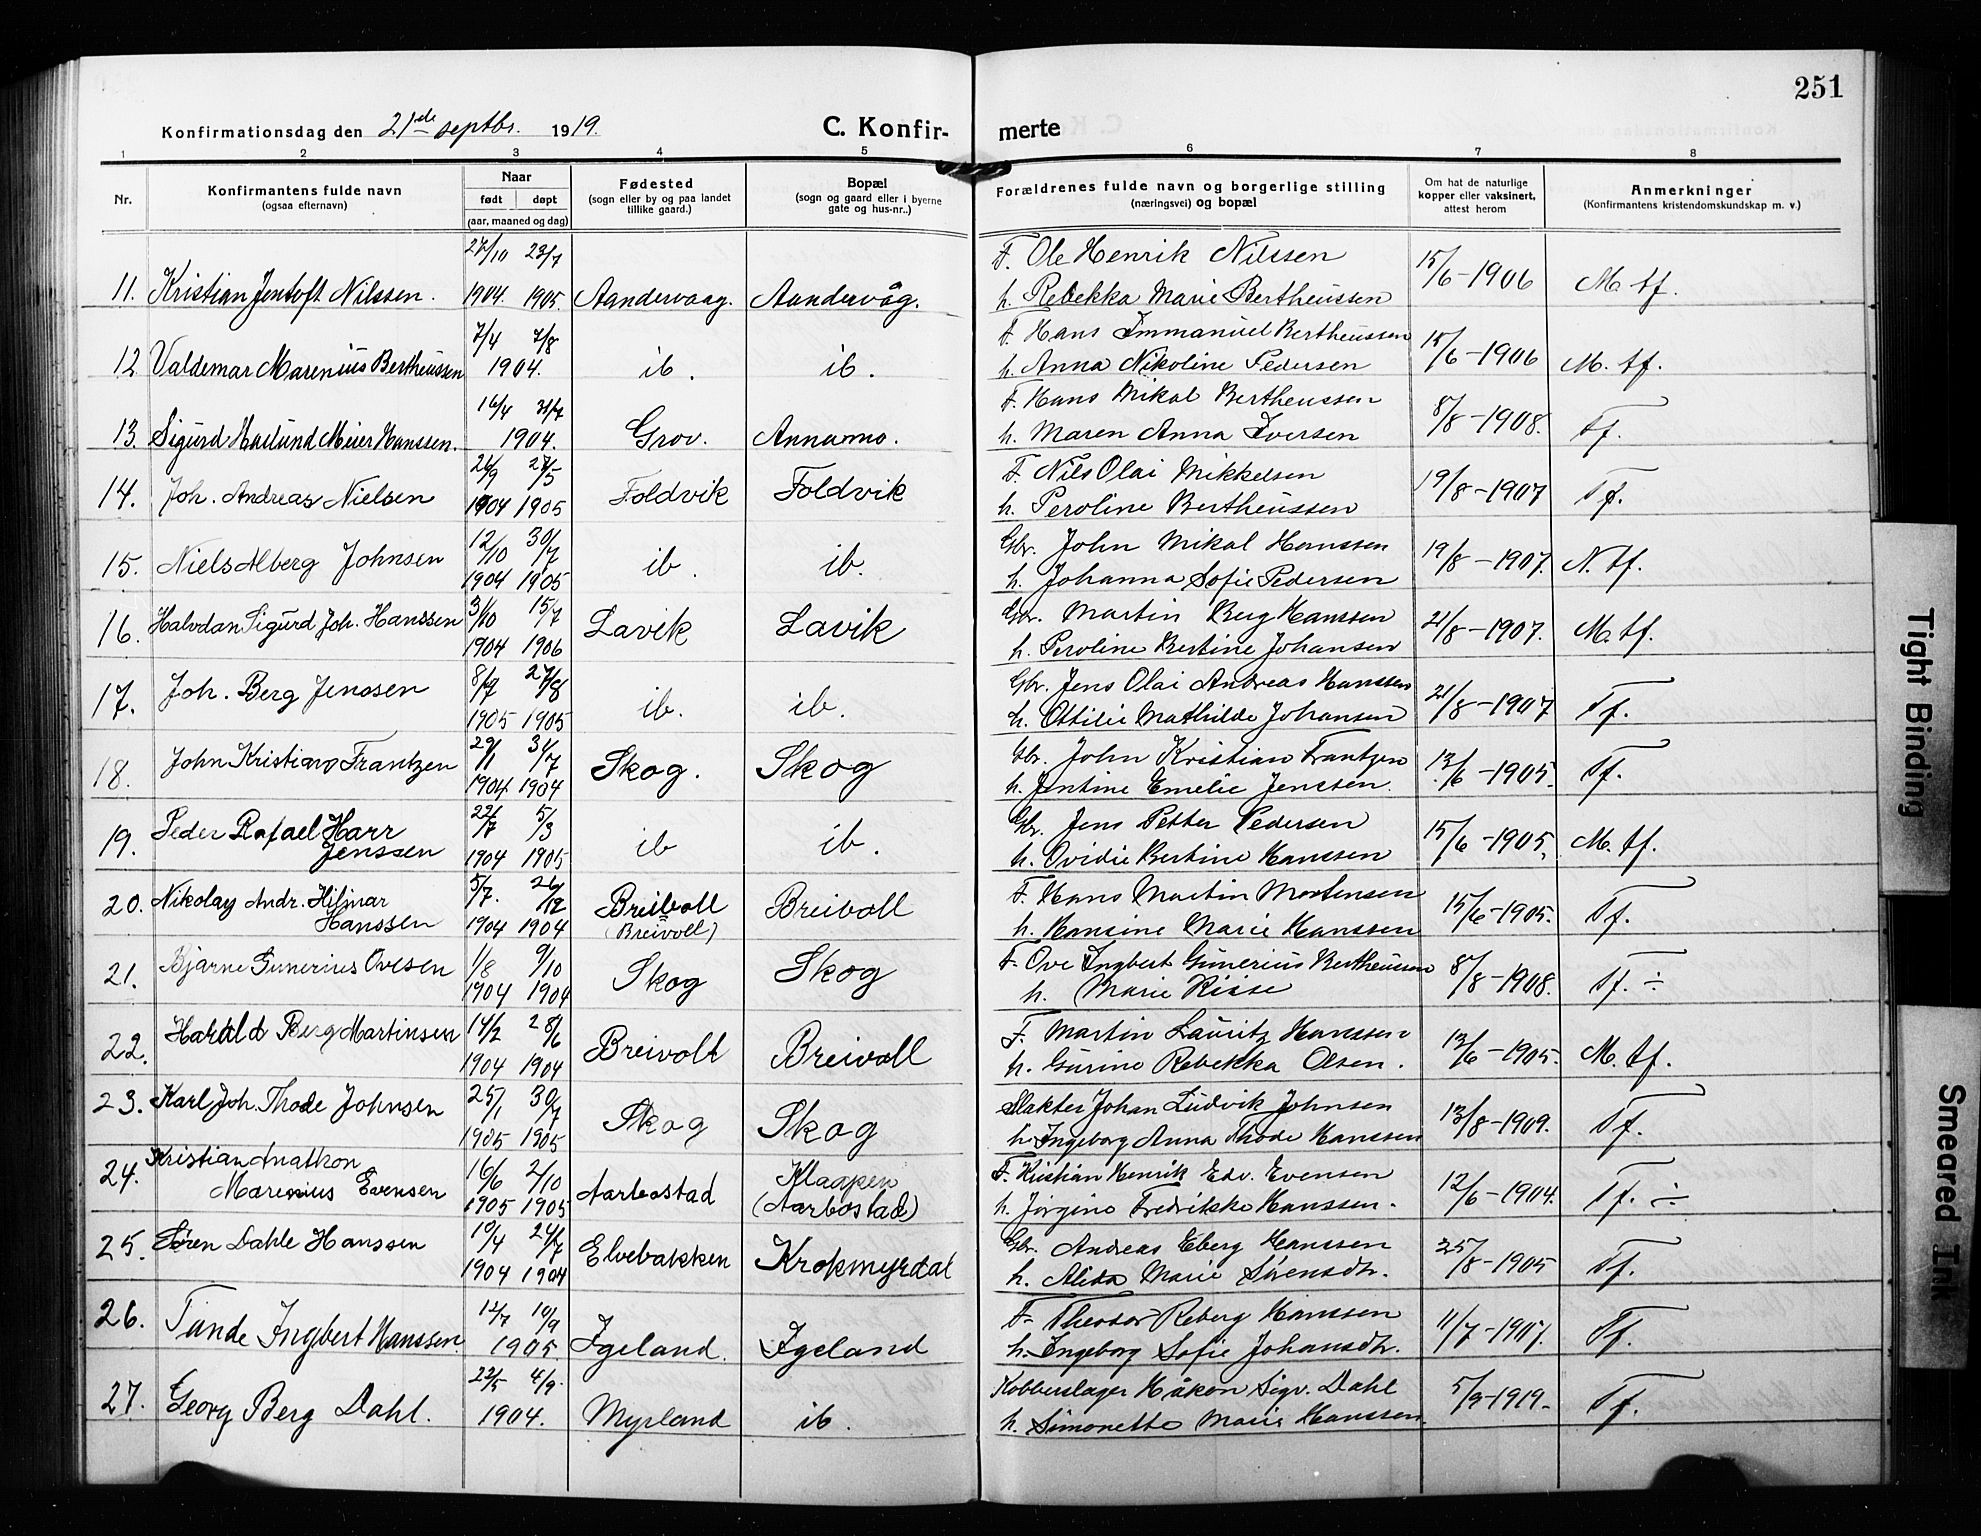 251
Konfirmationsdag den 21de septbr. 1919. C. Konfir- merte
1 2 3 4 5 6 7 8
Nr. Konfirmantens fulde navn (ogsaa efternavn) Naar født døpt (aar, maaned og dag) Fødested (sogn eller by og paa landet tillike gaard.) Bopæl (sogn og gaard eller i byerne gate og hus-nr..) Forældrenes fulde navn og borgerlige stilling (næringsvei) og bopæl Om hat de naturlige kopper eller vaksinert, attest herom Anmerkninger (Konfirmantens kristendomskundskap m. v.)
27/10 23/7 F. Ole Henrik Nilssen
11. Kristian Jentoft Nilssen. 1904. 1905. Aandervaag. Aandervåg. h. Rebekka Marie Bertheussen 15/6-1906 M. tf.
7/4 7/8 F. Hans Immanuel Bertheussen
12 Valdemar Marenius Bertheussen 1904. ib. ib. h. Anna Nikoline Pedersen 15/6-1906 M. tf.
16/4 31/7 F. Hans Mikal Bertheussen
13. Sigurd Haslund Meier Hanssen. 1904. Grov. Annamo. h. Maren Anna Iversen 8/8-1908. Tf.
26/9 27/5 F. Nils Olai Mikkelsen
14. Joh. Andreas Nielsen 1904 1905 Foldvik Foldvik h. Peroline Bertheussen 19/8-1907 Tf.
12/10 30/7 Gbr. John Mikal Hanssen
15. Niels Alberg Johnsen 1904 1905 ib. ib. h. Johanna Sofie Pedersen 19/8-1907. N. tf.
3/10 15/7 Gbr. Martin Berg Hanssen
16. Halvdan Sigurd Joh. Hanssen 1904 1906 Lavik Lavik h. Peroline Bertine Johansen 21/8-1907. M. tf.
8/7 27/8 Gbr. Jens Olai Andreas Hanssen
17. Joh. Berg Jenssen 1905 1905 ib. ib. h. Ottilie Mathilde Johansen 21/8-1907 Tf.
29/1 31/7 Gbr. John Kristian Frantzen
18. John Kristian Frantzen 1904 1904 Skog. Skog h. Jentine Emelie Jenssen. 13/6-1905. Tf.
22/7 5/3 Gbr. Jens Petter Pedersen
19. Peder Rafael Harr Jenssen 1904 1905 ib ib. h. Ovidie Bertine Hanssen 15/6-1905. M. tf.
5/7. 26/12 F. Hans Martin Mortensen
20. Nikolay Andr. Hilmar Hanssen 1904 1904 Breivoll (Breivoll) Breivoll h. Hansine Marie Hanssen 15/6-1905. Tf.
1/8 9/10 F. Ove Ingbert Gunerius Bertheussen
21. Bjarne Gunerius Ovesen 1904 1904 Skog Skog h. Marie Risse 8/8-1908. Tf. ÷
14/2 28/6 F. Martin Lauritz Hanssen
22. Harald Berg Martinsen 1904 1904 Breivoll Breivoll h. Gurine Rebekka Olsen. 13/6-1905. M. tf.
25/1 30/7 Slakter Johan Ludvik Johnsen
23. Karl Joh. Thode Johnsen 1905 1905 Skog Skog h. Ingeborg Anna Thode Hanssen 13/8-1909. Tf.
16/6 2/10 F. Kristian Henrik Edv. Evensen
24. Kristian Anathon Marenius Evensen 1905 1905 Aarbostad Klaapen (Aarbostad) h. Jørgine Fredrikke Hanssen. 12/6-1904. Tf. ÷
10/4 24/7 Gbr. Andreas Eberg Hanssen
25. Søren Dahle Hanssen 1904 1904 Elvebakken Krokmyrdal h. Alida Marie Sørensdtr. 25/8-1905 Tf.
12/7 10/9 F. Theodor Reberg Hanssen
26. Tande Ingbert Hanssen 1905 Igeland. Igeland h. Ingeborg Sofie Johansdtr. 11/7-1907. Tf.
22/5 4/9. Kobberslager Håkon Sigv. Dahl
27. Georg Berg Dahl. 1904. Myrland ib. h. Simonette Marie Hanssen 5/9-1919. Tf.
Tight Binding
Smeared Ink